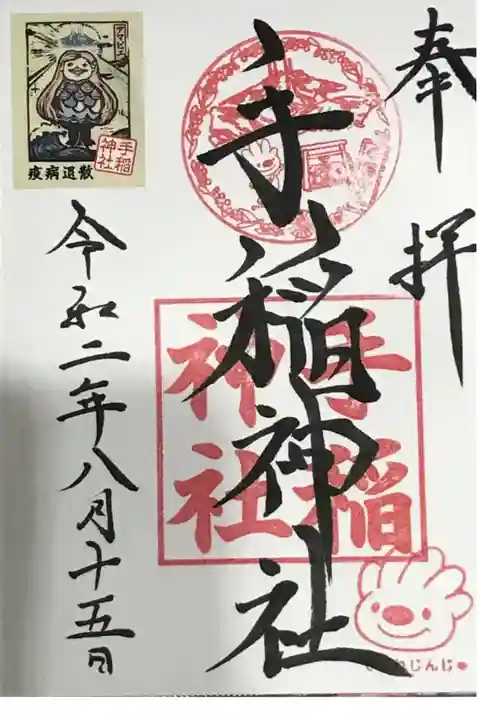 奉拝
手稲神社
手稲神社
令和二年八月十五日
アマビエ
手稲神社
疫病退散
じんじゃ